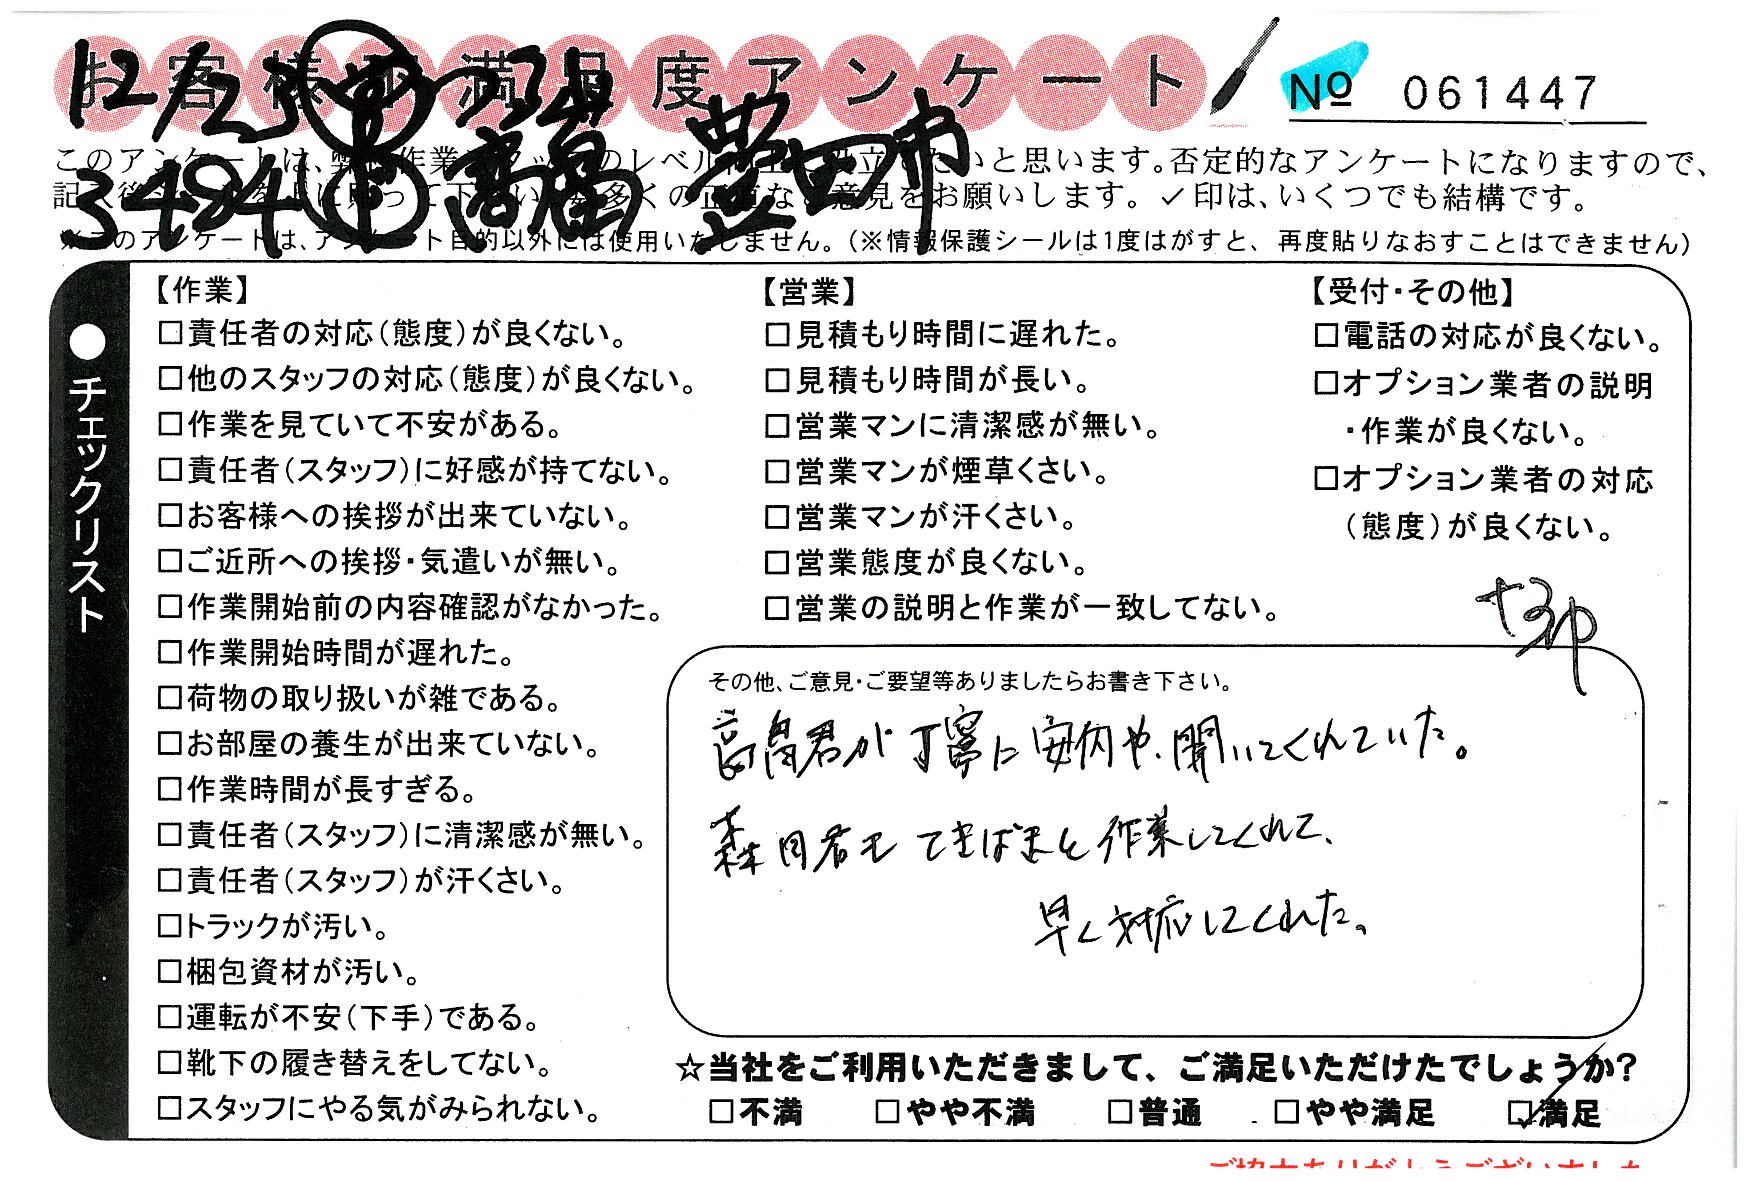 お客様満足度アンケート
№ 061447
12/23
3484 高畠 豊田市
このアンケートは、弊社作業スタッフのレベル向上に役立てたいと思います。否定的なアンケートになりますので、
記入後シールを上に貼って下さい。数多くの正直なご意見をお願いします。✓印は、いくつでも結構です。
※このアンケートは、アンケート目的以外には使用いたしません。(※情報保護シールは1度はがすと、再度貼りなおすことはできません)
●チェックリスト
【作業】
□責任者の対応(態度)が良くない。
□他のスタッフの対応(態度)が良くない。
□作業を見ていて不安がある。
□責任者(スタッフ)に好感が持てない。
□お客様への挨拶が出来ていない。
□ご近所への挨拶・気遣いが無い。
□作業開始前の内容確認がなかった。
□作業開始時間が遅れた。
□荷物の取り扱いが雑である。
□お部屋の養生が出来ていない。
□作業時間が長すぎる。
□責任者(スタッフ)に清潔感が無い。
□責任者(スタッフ)が汗くさい。
□トラックが汚い。
□梱包資材が汚い。
□運転が不安(下手)である。
□靴下の履き替えをしてない。
□スタッフにやる気がみられない。
【営業】
□見積もり時間に遅れた。
□見積もり時間が長い。
□営業マンに清潔感が無い。
□営業マンが煙草くさい。
□営業マンが汗くさい。
□営業態度が良くない。
□営業の説明と作業が一致してない。
【受付・その他】
□電話の対応が良くない。
□オプション業者の説明
・作業が良くない。
□オプション業者の対応
(態度)が良くない。
その他、ご意見・ご要望等ありましたらお書き下さい。
高畠君が丁寧に案内や、聞いてくれていた。
森田君もてきぱきと作業してくれて、
早く対応してくれた。
☆当社をご利用いただきまして、ご満足いただけたでしょうか?
□不満 □やや不満 □普通 □やや満足 ☑満足
ご協力ありがとうございました